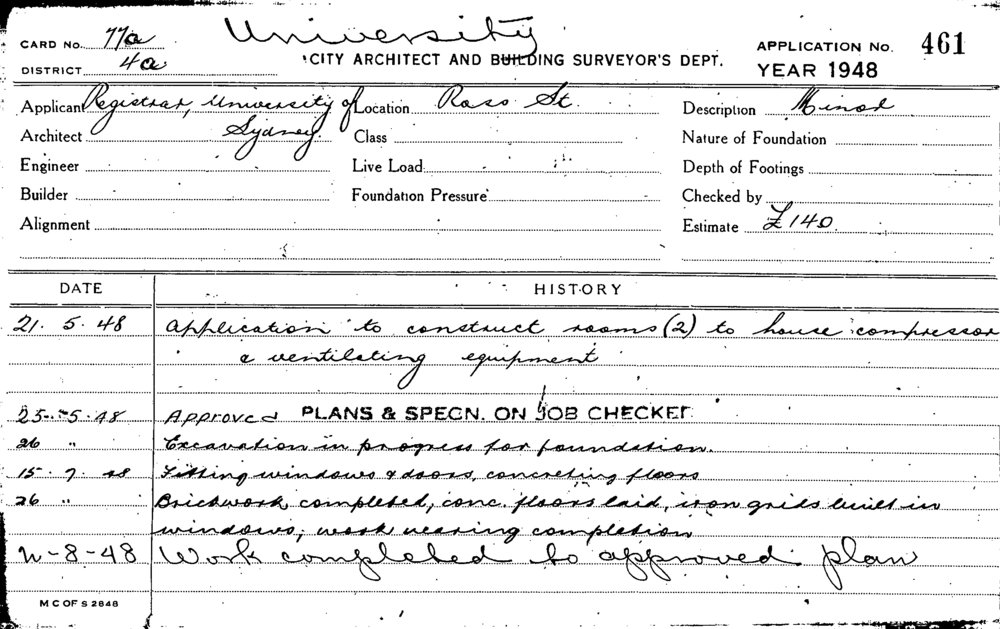 University
CARD No. 77a
CITY ARCHITECT AND BUILDING SURVEYOR'S DEPT.
APPLICATION No. 461
DISTRICT 4a
YEAR 1948
Applicant Registrar, University of Sydney.
Location Ross St.
Description Minor
Architect
Class
Nature of Foundation
Engineer
Live Load
Depth of Footings
Builder
Foundation Pressure
Checked by
Alignment
Estimate £140.
DATE HISTORY
21. 5. 48 Application to construct rooms (2) to house compressor
& ventilating equipment
25. 5. 48 Approved PLANS & SPECN. ON JOB CHECKED
26 " Excavation in progress for foundation.
15. 7. 48 Fitting windows & doors, concreting floors
26 " Brickwork completed, conc. floors laid, iron grids built in
windows, work nearing completion
-8-48 Work completed to approved plan
M C OF S 2848